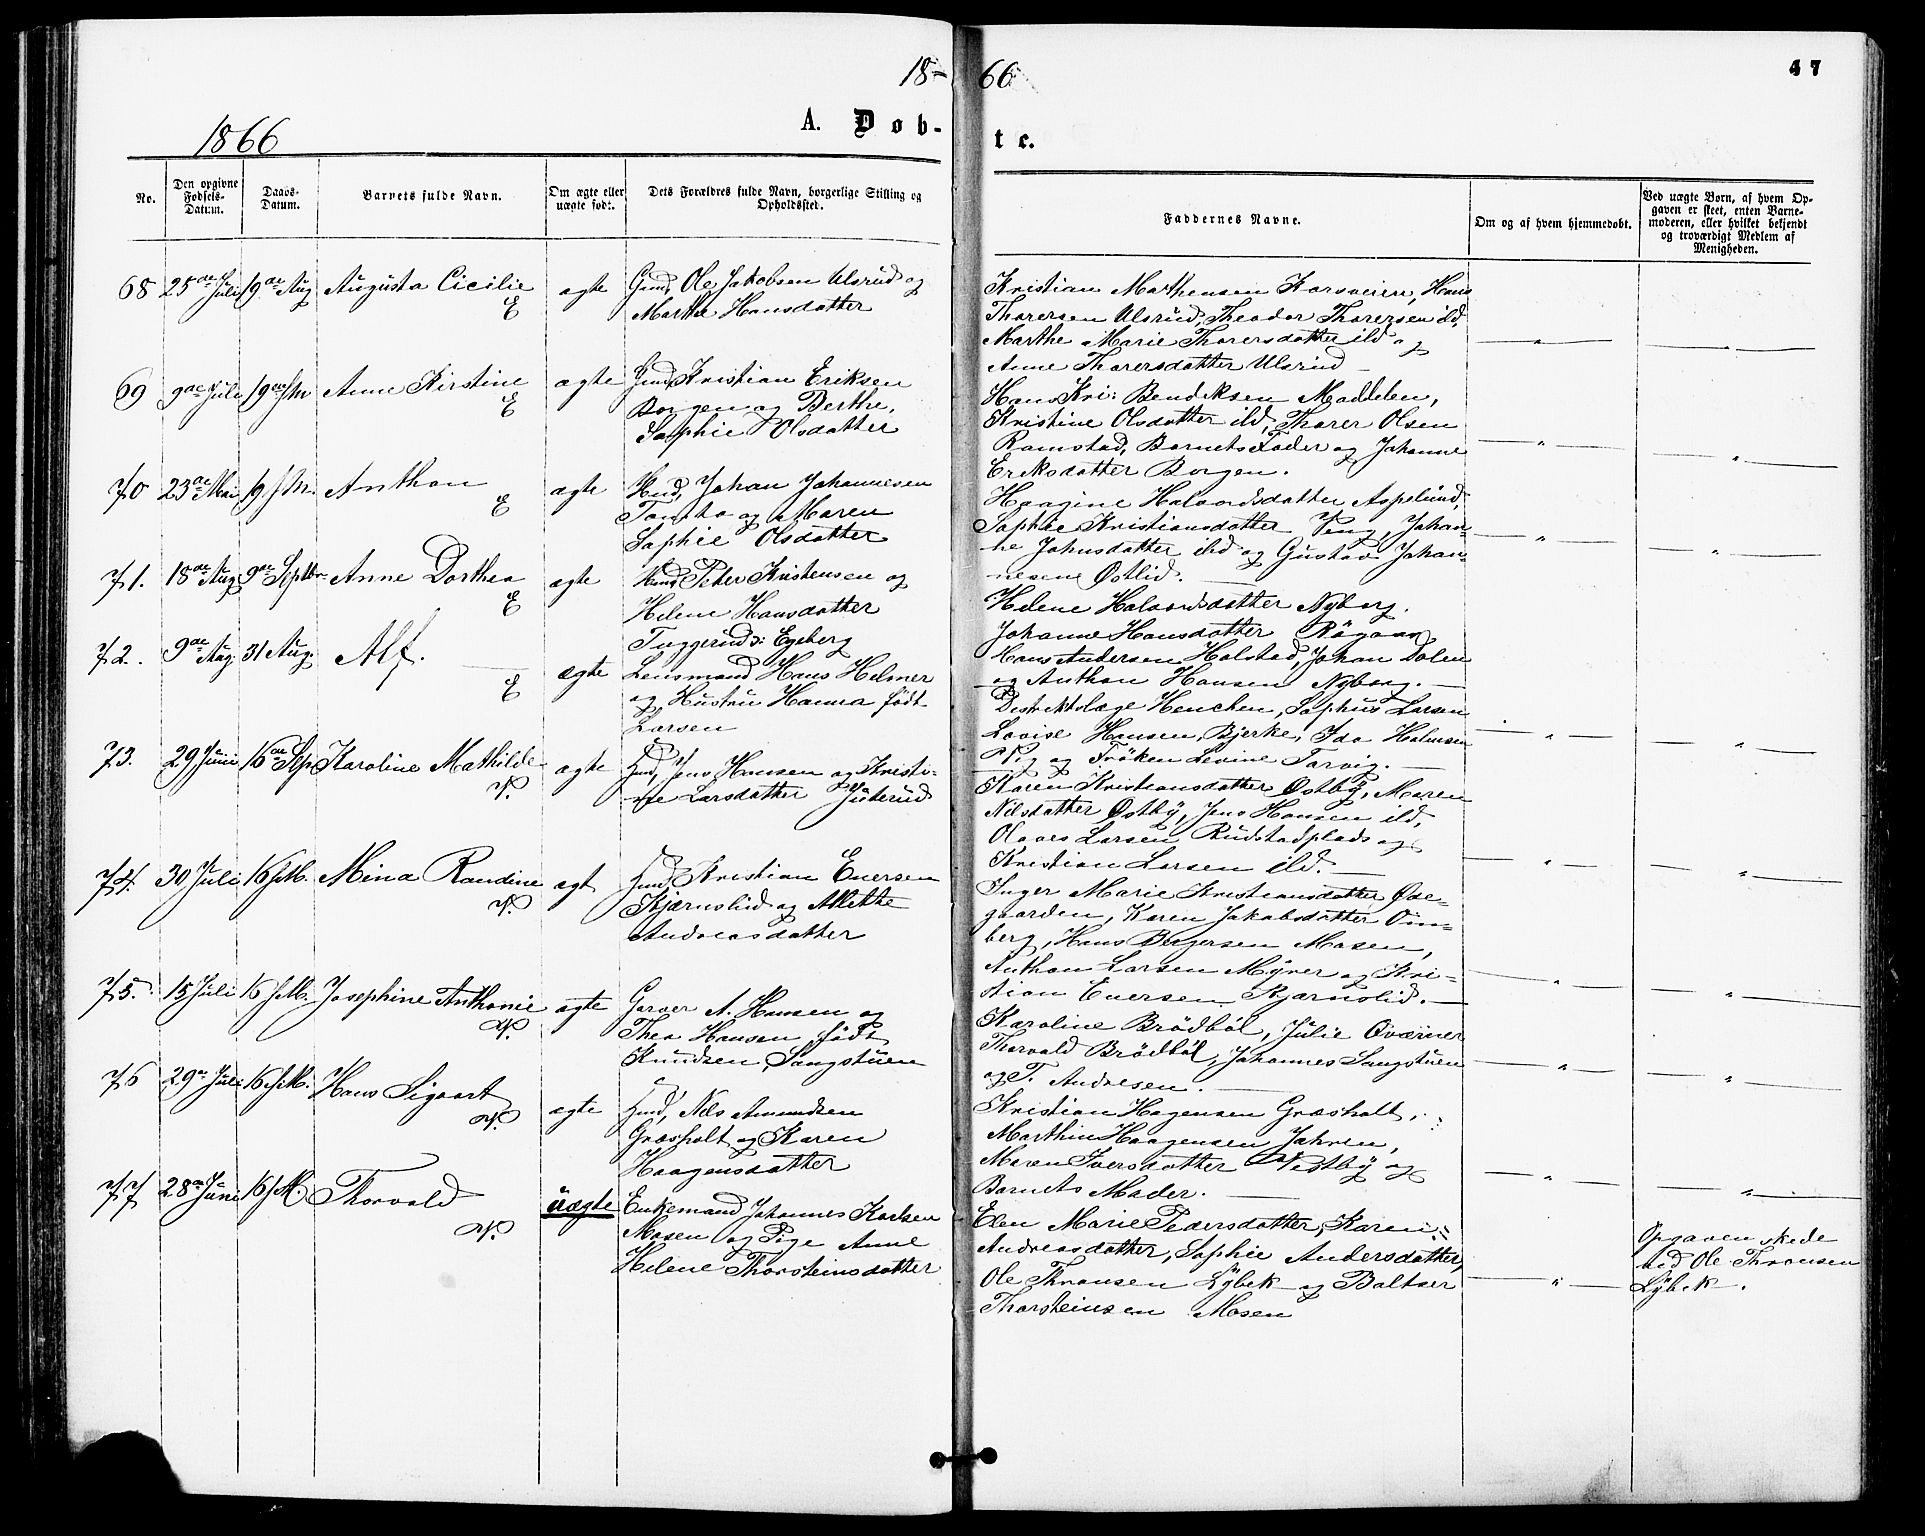 18-66
47
A. Døb-te.
1866
No.
Den opgivne Fødsels-Datum.
Daabs-Datum.
Barnets fulde Navn.
Om ægte eller uægte født.
Dets Forældres fulde Navn, borgerlige Stilling og Opholdssted.
Faddernes Navne.
Om og af hvem hjemmedøbt.
Ved uægte Børn, af hvem Opgaven er skeet, enten Barnemoderen, eller hvilket bekjendt og troværdigt Medlem af Menigheden.
68 25de Juli 19de Aug Augusta Cicilie ægte Gmd Ole Jakobsen Ulsrud og
E Marthe Hansdatter
69 9de Juli 19de s.M. Anne Kirstine ægte Gmd Kristian Eriksen
E Borgen og Berthe
Sophie Olsdatter
70 23de Mai 19 s.M. Anthon ægte Hmd, Johan Johannesen
E Tomta og Maren
Sophie Olsdatter
71. 18de Aug 9de Septbr. Anne Dorthea ægte Hmd Peter Kristensen og
E Helene Hansdatter
Tuggerud Egeberg
72. 9de Aug. 31 Aug. Alf. ægte Lensmand Hans Helmer
E og Hustru Hanna født
Larsen
73. 29 Juni 16de Sep Karoline Mathilde ægte Hmd, Jens Hansen og Kristi-
N. ne Larsdatter Juterud
74. 30 Juli 16 s.M. Mina Randine ægt Hmd Kristian Evensen
N. Kjærnslid og Allette
Andreasdatter
75. 15 Juli 16 s.M. Josephine Anthonie ægte Garver A. Hansen og
N. Thea Hansen født
Knudsen, Sangstuen
76 29de Juli 16 s.M. Hans Sigvart ægte Hmd, Nils Amundsen
N. Græsholt og Karen
Haagensdatter
77 28de Juni 16 s.M. Thorvald uægte Enkemand Johannes Karlsen
N. Mosen og Pige Anne
Helene Thorsteinsdatter
Kristian Mathensen Korsveien, Hans
Thorersen Ulsrud, Theodor Thorersen ibd,
Marthe Marie Thorersdatter ibd og
Anne Thorersdatter Ulsrud
Hans Kri: Bendiksen Maddelen,
Kristine Olsdatter ibd, Thorer Olsen
Ramstad, Barnets Fader og Johanne
Eriksdatter Borgen.
Haagine Halvordsdatter Aspelund,
Sophie Kristiansdatter Veng, Johan-
ne Johnsdatter ibd og Gustav Johan-
nesene Østlid.
Helene Halvordsdatter Nyborg.
Johanne Hansdatter
Hans Andersen Halstad, Johan Dalen
og Anthon Hansen Nyborg.
Distriktslæge Henchen, Sophus Larsen
Lovise Hansen Bjerke, Ida Halvorsen
og Frøken Levine Tarvig.
Karen Kristiansdatter Østby, Maren
Nilsdatter Østby, Jens Hansen ibd,
Olaves Larsen Rudstadplads og
Kristian Larsen ibd.
Inger Marie Kristiansdatter Øde-
gaarden, Karen Jakobsdatter
berg, Hans Birgersen Mosen,
Anthon Larsen Myrer og Kri-
stian Evensen Kjærnslid.
Karoline Brødbøl, Julie
Thorvald Brødbøl, Johannes Sangstuen
og T. Andresen.
Kristian Hagensen Græsholt,
Marthin Haagensen Jahren,
Maren Iversdatter Vestby og
Barnets Moder.
Elen Marie Pedersdatter, Karen
Andreasdatter, Sophie Andersdatter,
Ole Thronsen Lybek og Baltser
Thorsteinsen Mosen
Opgaven skede
ved Ole Thronsen
Lybek.